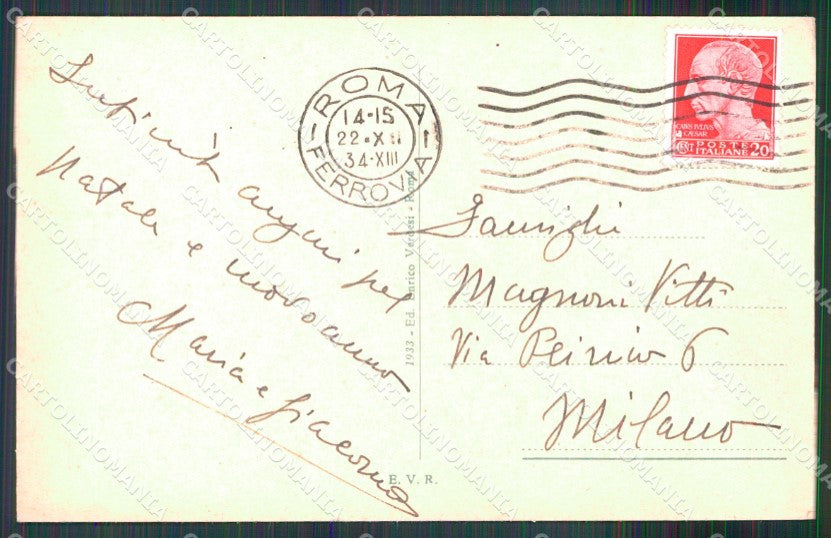 auguri per
Natale e
nuovo anno
Maria e Giacomo
1933 - Ed. Enrico Verdesi - Roma
E. V. R.
ROMA
FERROVIA
14-15
22·XII
34·XIII
CAIVS IVLIVS
CAESAR
CENT POSTE 20
ITALIANE
Famiglia
Magnoni Vitti
Via
6
Milano
CARTOLINOMANIA